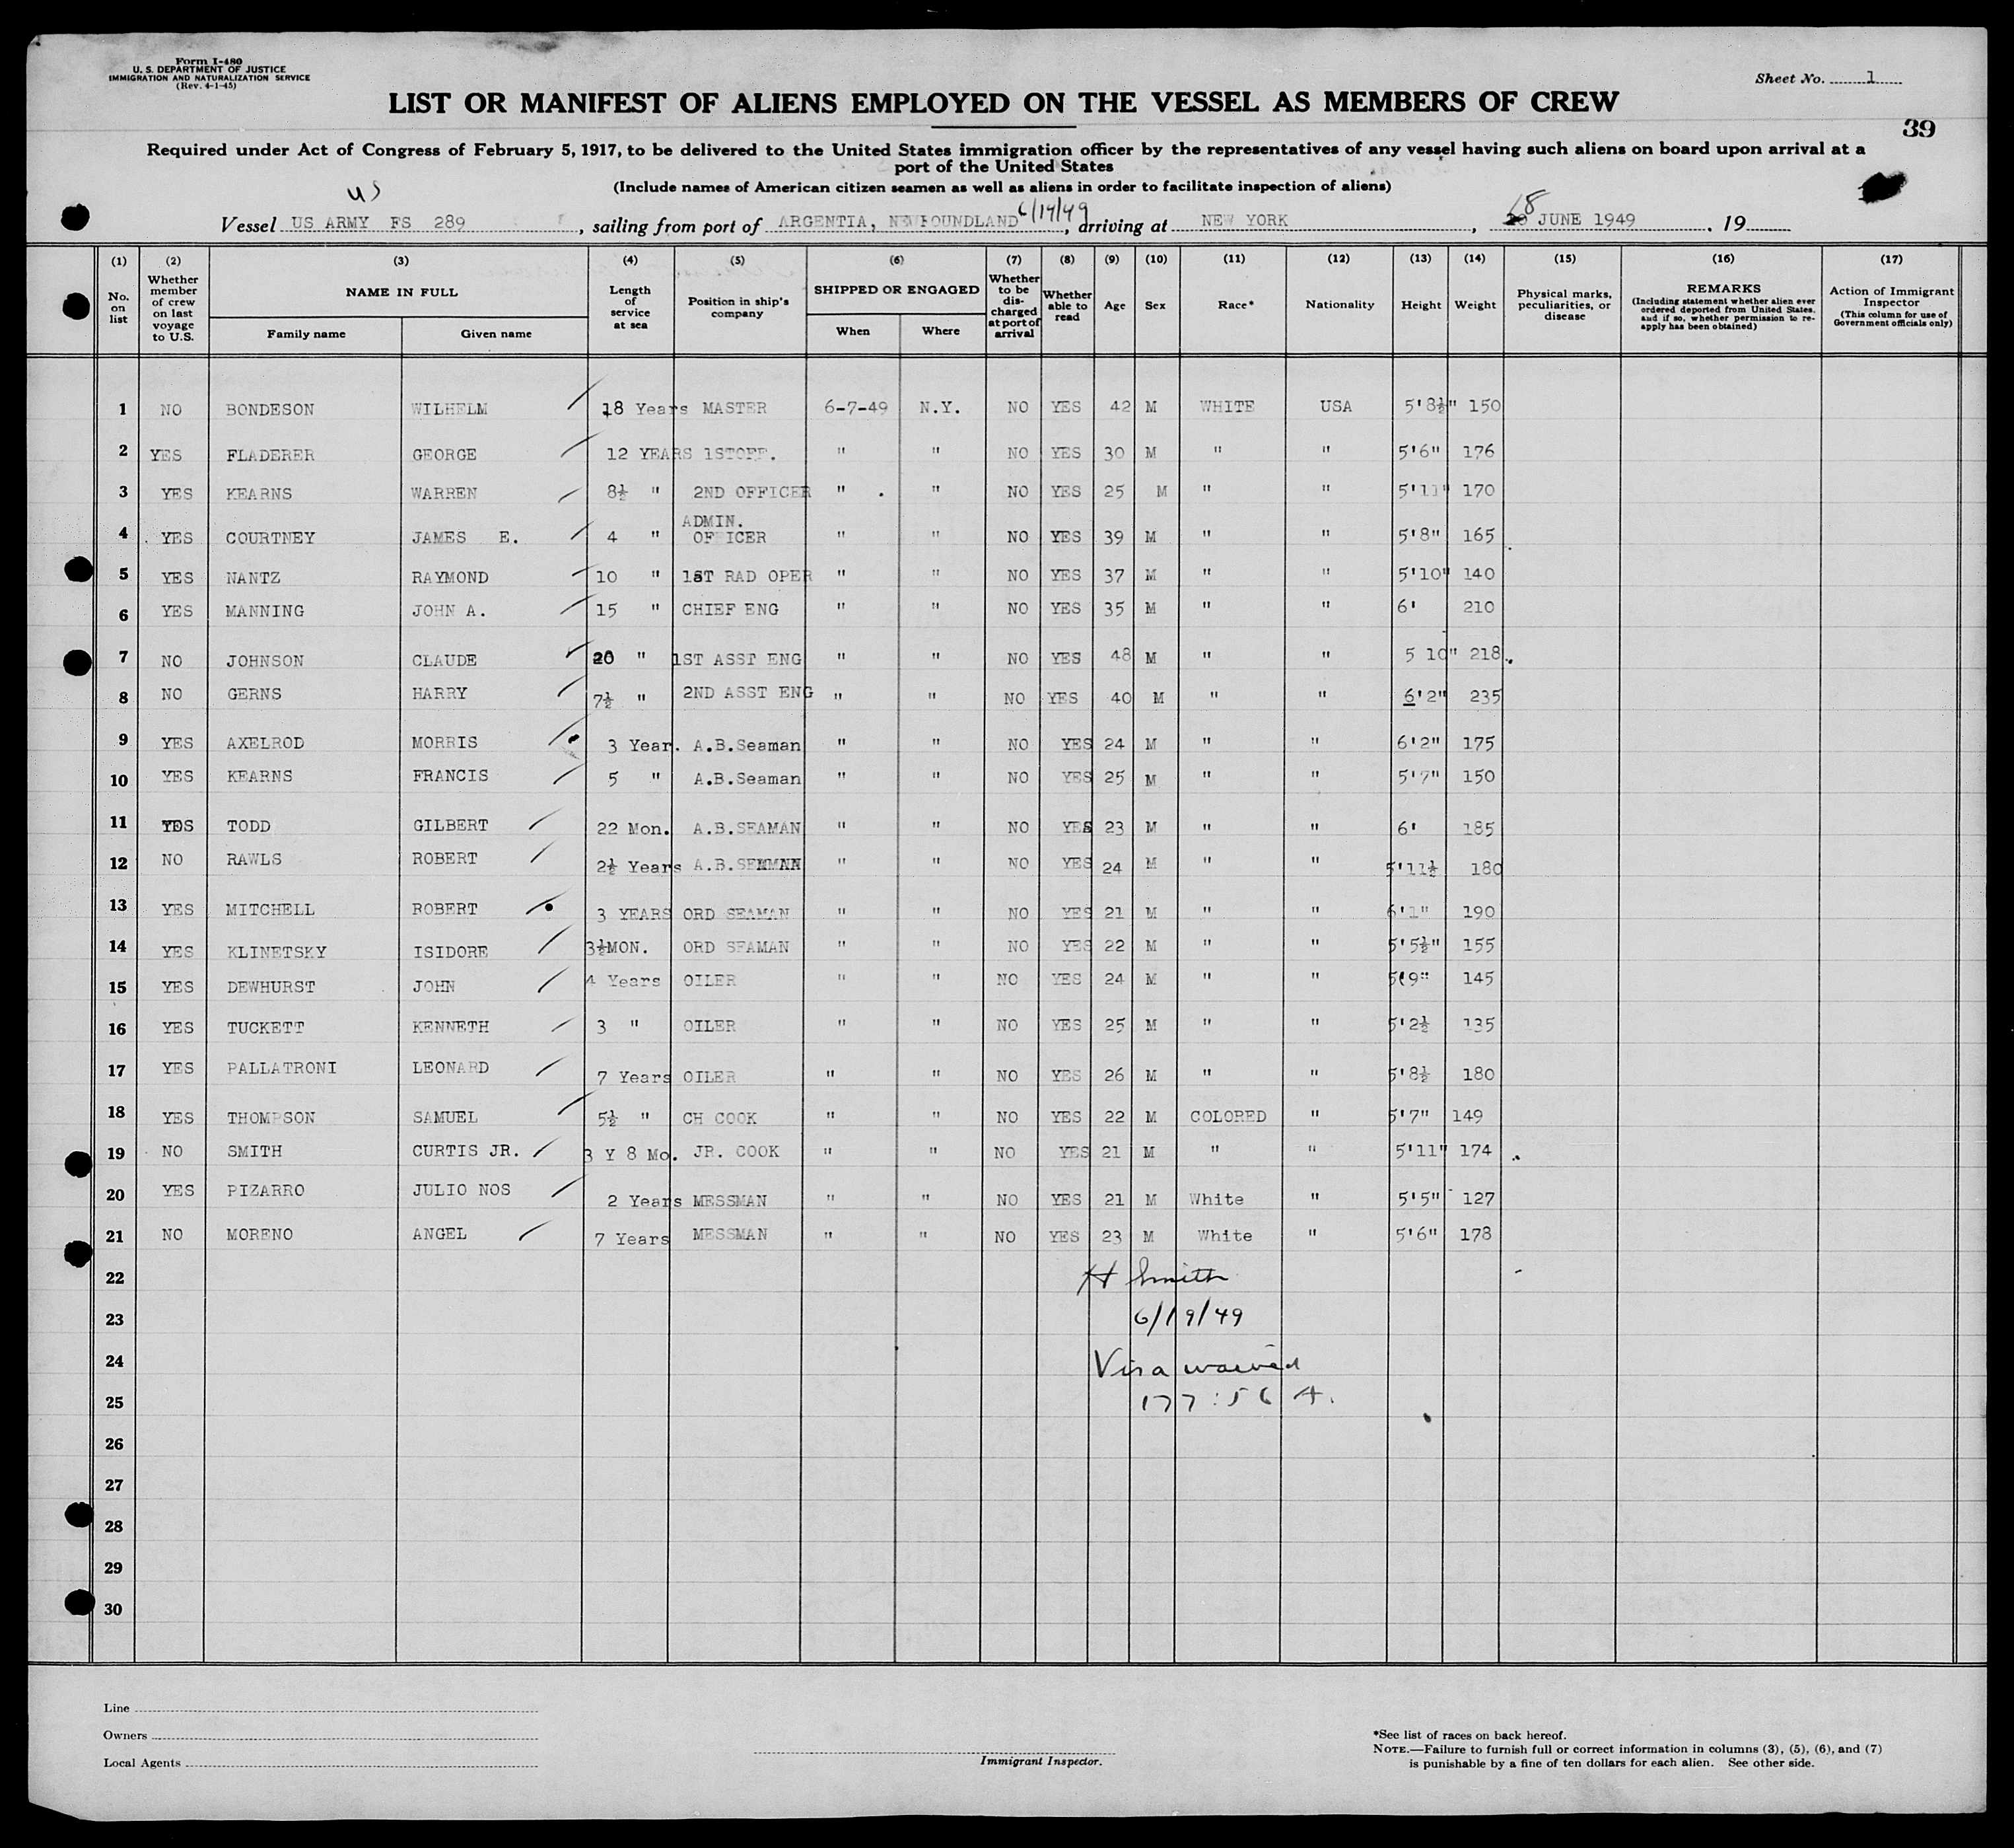 Form I-480
U. S. DEPARTMENT OF JUSTICE
IMMIGRATION AND NATURALIZATION SERVICE
(Rev. 4-1-45)
Sheet No. 1
LIST OR MANIFEST OF ALIENS EMPLOYED ON THE VESSEL AS MEMBERS OF CREW
39
Required under Act of Congress of February 5, 1917, to be delivered to the United States immigration officer by the representatives of any vessel having such aliens on board upon arrival at a
port of the United States
(Include names of American citizen seamen as well as aliens in order to facilitate inspection of aliens)
US
Vessel US ARMY FS 289, sailing from port of ARGENTIA, NEWFOUNDLAND 6/14/49, arriving at NEW YORK, 18 JUNE 1949, 19
(1) (2) (3) (4) (5) (6) (7) (8) (9) (10) (11) (12) (13) (14) (15) (16) (17)
No. on list
Whether member of crew on last voyage to U.S.
NAME IN FULL
Family name Given name
Length of service at sea
Position in ship's company
SHIPPED OR ENGAGED
When Where
Whether to be discharged at port of arrival
Whether able to read
Age
Sex
Race*
Nationality
Height
Weight
Physical marks, peculiarities, or disease
REMARKS
(Including statement whether alien ever ordered deported from United States, and if so, whether permission to reapply has been obtained)
Action of Immigrant Inspector
(This column for use of Government officials only)
1 NO BONDESON WILHELM 18 Years MASTER 6-7-49 N.Y. NO YES 42 M WHITE USA 5'8½" 150
2 YES FLADERER GEORGE 12 YEARS 1STOFF. " " NO YES 30 M " " 5'6" 176
3 YES KEARNS WARREN 8½ " 2ND OFFICER " " NO YES 25 M " " 5'11" 170
4 YES COURTNEY JAMES E. 4 " ADMIN. OFFICER " " NO YES 39 M " " 5'8" 165
5 YES NANTZ RAYMOND 10 " 1ST RAD OPER " " NO YES 37 M " " 5'10" 140
6 YES MANNING JOHN A. 15 " CHIEF ENG " " NO YES 35 M " " 6' 210
7 NO JOHNSON CLAUDE 20 " 1ST ASST ENG " " NO YES 48 M " " 5 10" 218
8 NO GERNS HARRY 7½ " 2ND ASST ENG " " NO YES 40 M " " 6'2" 235
9 YES AXELROD MORRIS 3 Year. A.B.Seaman " " NO YES 24 M " " 6'2" 175
10 YES KEARNS FRANCIS 5 " A.B.Seaman " " NO YES 25 M " " 5'7" 150
11 YES TODD GILBERT 22 Mon. A.B.SEAMAN " " NO YES 23 M " " 6' 185
12 NO RAWLS ROBERT 2½ Years A.B.SEAMAN " " NO YES 24 M " " 5'11½ 180
13 YES MITCHELL ROBERT 3 YEARS ORD SEAMAN " " NO YES 21 M " " 6'1" 190
14 YES KLINETSKY ISIDORE 3½MON. ORD SEAMAN " " NO YES 22 M " " 5'5½" 155
15 YES DEWHURST JOHN 4 Years OILER " " NO YES 24 M " " 5'9" 145
16 YES TUCKETT KENNETH 3 " OILER " " NO YES 25 M " " 5'2½ 135
17 YES PALLATRONI LEONARD 7 Years OILER " " NO YES 26 M " " 5'8½ 180
18 YES THOMPSON SAMUEL 5½ " CH COOK " " NO YES 22 M COLORED " 5'7" 149
19 NO SMITH CURTIS JR. 3 Y 8 Mo. JR. COOK " " NO YES 21 M " " 5'11" 174
20 YES PIZARRO JULIO NOS 2 Years MESSMAN " " NO YES 21 M White " 5'5" 127
21 NO MORENO ANGEL 7 Years MESSMAN " " NO YES 23 M White " 5'6" 178
22 H Smith
23 6/19/49
24 Visa waived
25 177:56 A.
26
27
28
29
30
Line
Owners
Local Agents
Immigrant Inspector.
*See list of races on back hereof.
NOTE.—Failure to furnish full or correct information in columns (3), (5), (6), and (7)
is punishable by a fine of ten dollars for each alien. See other side.